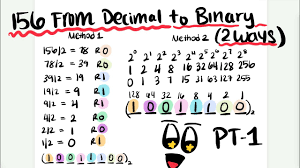 156 From Decimal to Binary
(2 ways)
Method 1
156/2 = 78 R 0
78/2 = 39 R 0
39/2 = 19 R 1
19/2 = 9 R 1
9/2 = 4 R 1
4/2 = 2 R 0
2/2 = 1 R 0
1/2 = 0 R 1
(10011100)₂
Method 2
2⁰ 2¹ 2² 2³ 2⁴ 2⁵ 2⁶ 2⁷ 2⁸
1 2 4 8 16 32 64 128 256
0 1 3 7 15 31 63 127 255
128 64 32 16 8 4 2 1
(10011100)₂
PT-1